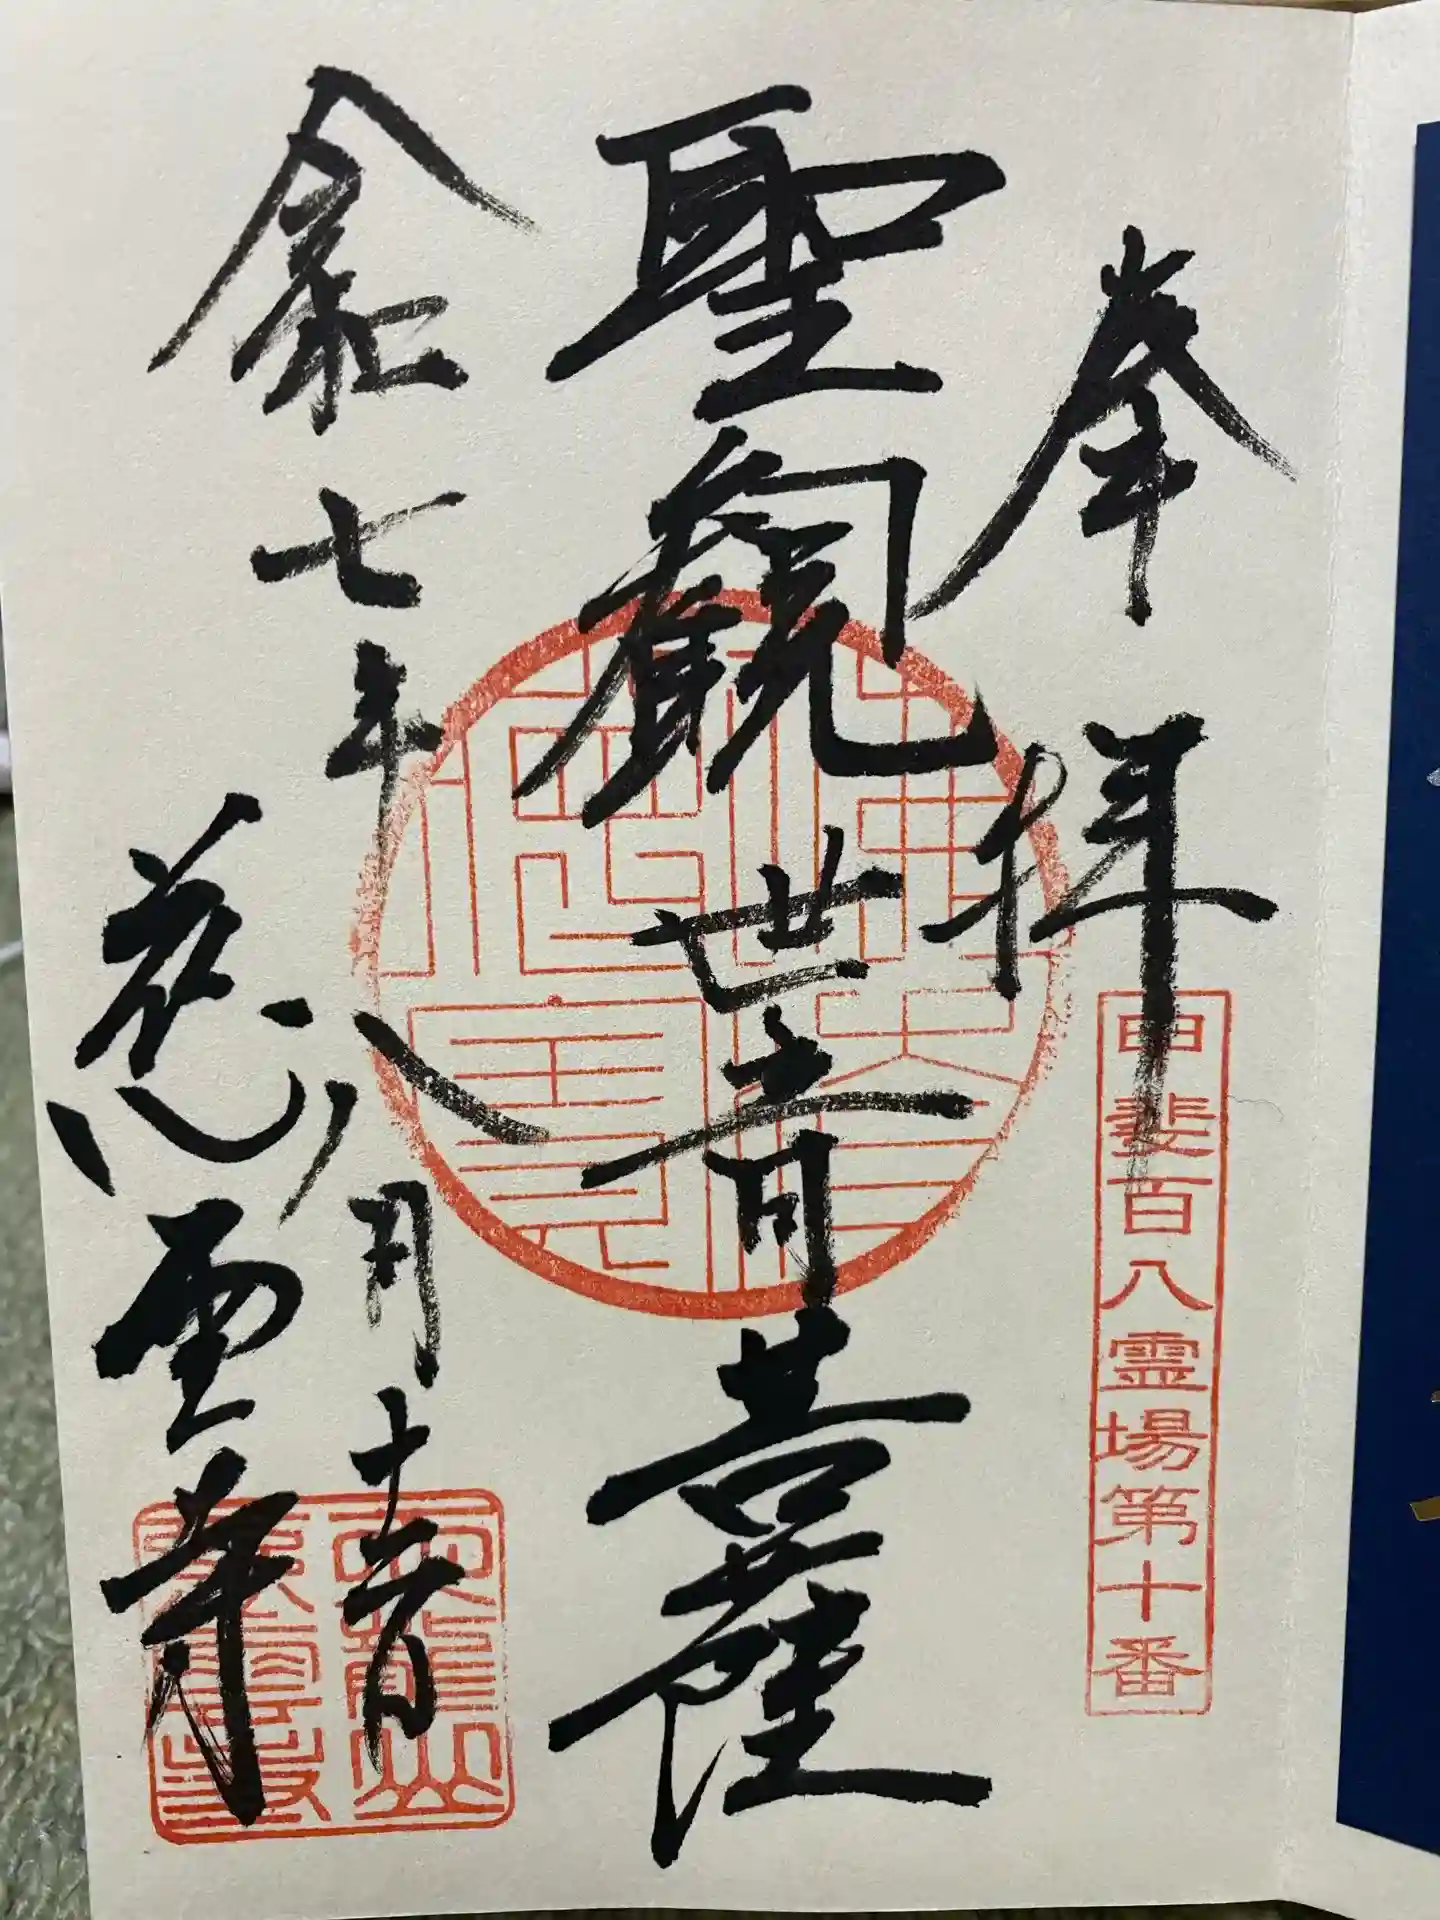 奉拝
甲斐百八霊場第十番
聖観世音菩薩
令和七年八月十六日
慈雲寺